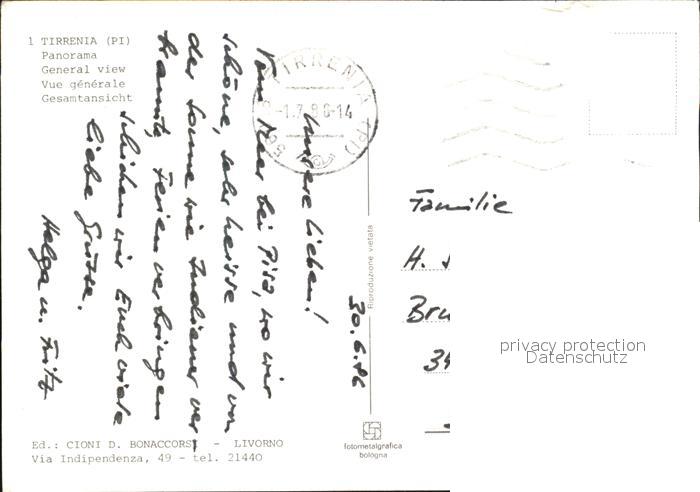 1 TIRRENIA (PI)
Panorama
General view
Vue générale
Gesamtansicht
TIRRENIA (PI)
-1.7.86-14
30.6.86
Unsere lieben!
Vom Meer bei Pisa, wo wir
schöne, sehr heisse und von
der Sonne wie Indianer ver-
brannte Ferien verbringen
schicken wir Euch viele
liebe Grüsse.
Helga u. Fritz
Familie
H.
Bru
34
Riproduzione vietata
privacy protection
Datenschutz
Ed.: CIONI D. BONACCORSI - LIVORNO
Via Indipendenza, 49 - tel. 21440
fotometalgrafica
bologna